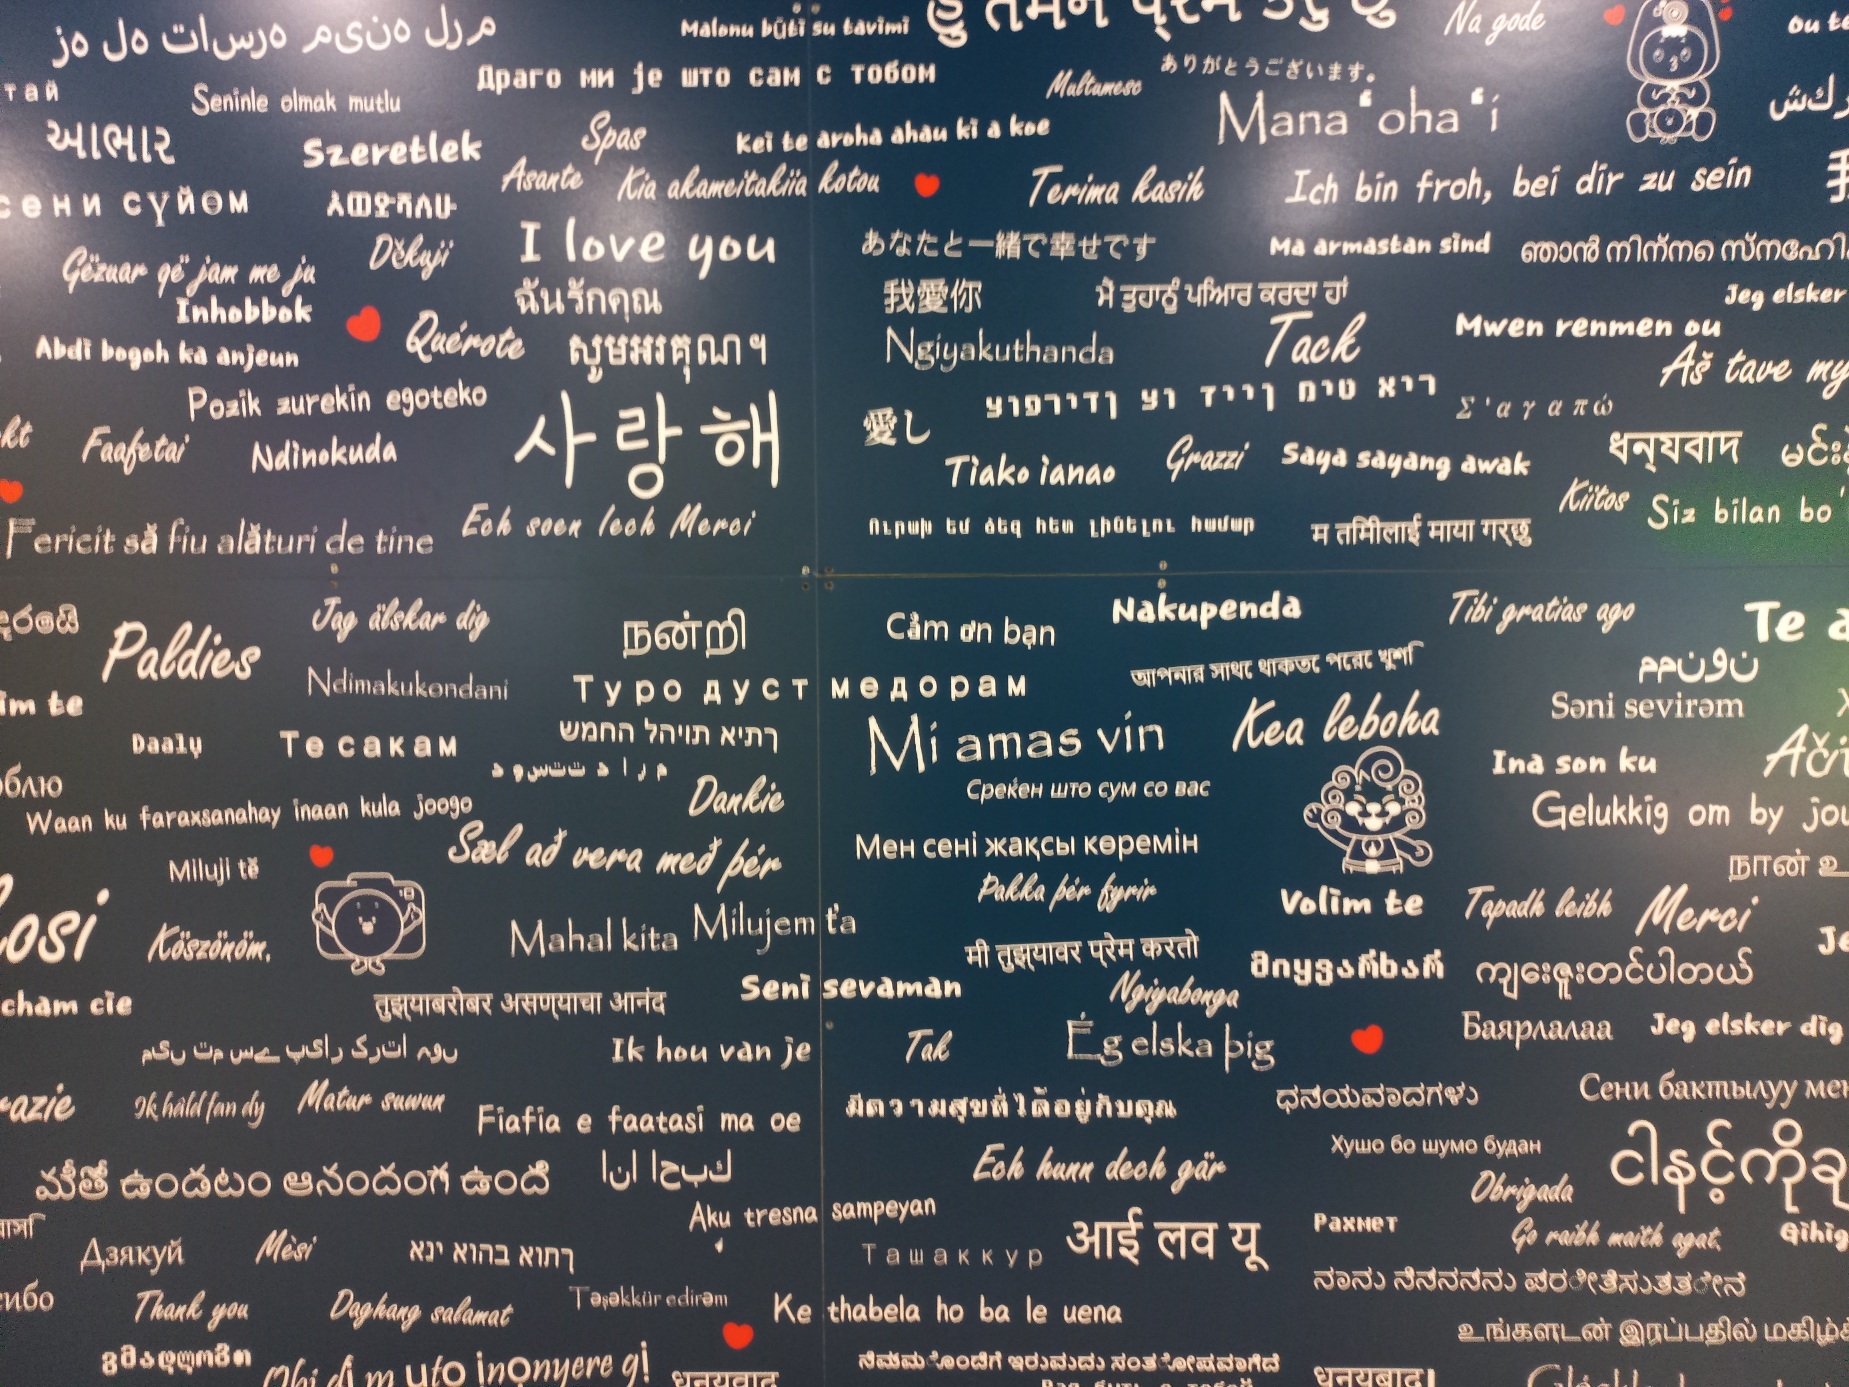 Malonu būti su tavimi
Na gode
Драго ми је што сам с тобом
ありがとうございます。
Seninle olmak mutlu
Multumesc
Mana ʻoha ʻi
આભાર
Szeretlek
Spas
Kei te aroha ahau ki a koe
Asante
Kia akameitakiia kotou
Terima kasih
Ich bin froh, bei dir zu sein
сени сүйөм
Gëzuar që jam me ju
Děkuji
I love you
あなたと一緒で幸せです
Ma armastan sind
ഞാൻ നിന്നെ
Inhobbok
ฉันรักคุณ
我愛你
ਮੈ ਤੁਹਾਨੂੰ ਪਿਆਰ ਕਰਦਾ ਹਾਂ
Jeg elsker
Abdi bogoh ka anjeun
Quérote
សូមអរគុណ។
Ngiyakuthanda
Tack
Mwen renmen ou
Aš tave my
Pozik zurekin egoteko
사랑해
愛し
ריא טימ ןייד וצ ןדירפוצ
Σ'αγαπώ
Faafetai
Ndinokuda
Tiako ianao
Grazzi
Saya sayang awak
धन्यवाद
Kiitos
Siz bilan bo'
Fericit să fiu alături de tine
Ech soen lech Merci
Ուրախ եմ ձեզ հետ լինելու համար
म तिमीलाई माया गर्छु
Paldies
Jag älskar dig
நன்றி
Cảm ơn bạn
Nakupenda
Tibi gratias ago
Te a
Ndimakukondani
Туро дуст медорам
আপনার সাথে থাকতে পেরে খুশি
ممنون
im te
Mi amas vin
Kea leboha
Səni sevirəm
Daalụ
Те сакам
ךתיא תויהל החמש
د و س ت ت د ا ر م
Среќен што сум со вас
Ina son ku
Ači
Waan ku faraxsanahay inaan kula joogo
Dankie
Gelukkig om by jou
Miluji tě
Sæl að vera með þér
Мен сені жақсы көремін
Þakka þér fyrir
நான் உ
Volim te
Tapadh leibh
Merci
Köszönöm.
Mahal kita
Milujem ťa
मी तुझ्यावर प्रेम करतो
მიყვარხარ
ကျေးဇူးတင်ပါတယ်
cham cie
तुझ्याबरोबर असण्याचा आनंद
Seni sevaman
Ngiyabonga
Ég elska þig
Баярлалаа
Jeg elsker dig
Ik hou van je
Tak
Ik hâld fan dy
Matur suwun
Fiafia e faatasi ma oe
มีความสุขที่ได้อยู่กับคุณ
ಧನ್ಯವಾದಗಳು
Сени бактылуу мен
మీతో ఉండటం ఆనందంగా ఉంది
انا احبك
Ech hunn dech gär
Хушо бо шумо будан
Obrigada
Aku tresna sampeyan
Дзякуй
Mèsi
ךתוא בהוא ינא
Ташаккур
आई लव यू
Рахмет
Go raibh maith agat.
Thank you
Daghang salamat
Təşəkkür edirəm
Ke thabela ho ba le uena
உங்களுடன் இருப்பதில் மகிழ்ச்
გმადლობთ
Obi dị m ụtọ inọnyere gị!
धन्यवाद
ನಿಮ್ಮೊಂದಿಗೆ ಇರುವುದು ಸಂತೋಷವಾಗಿದೆ